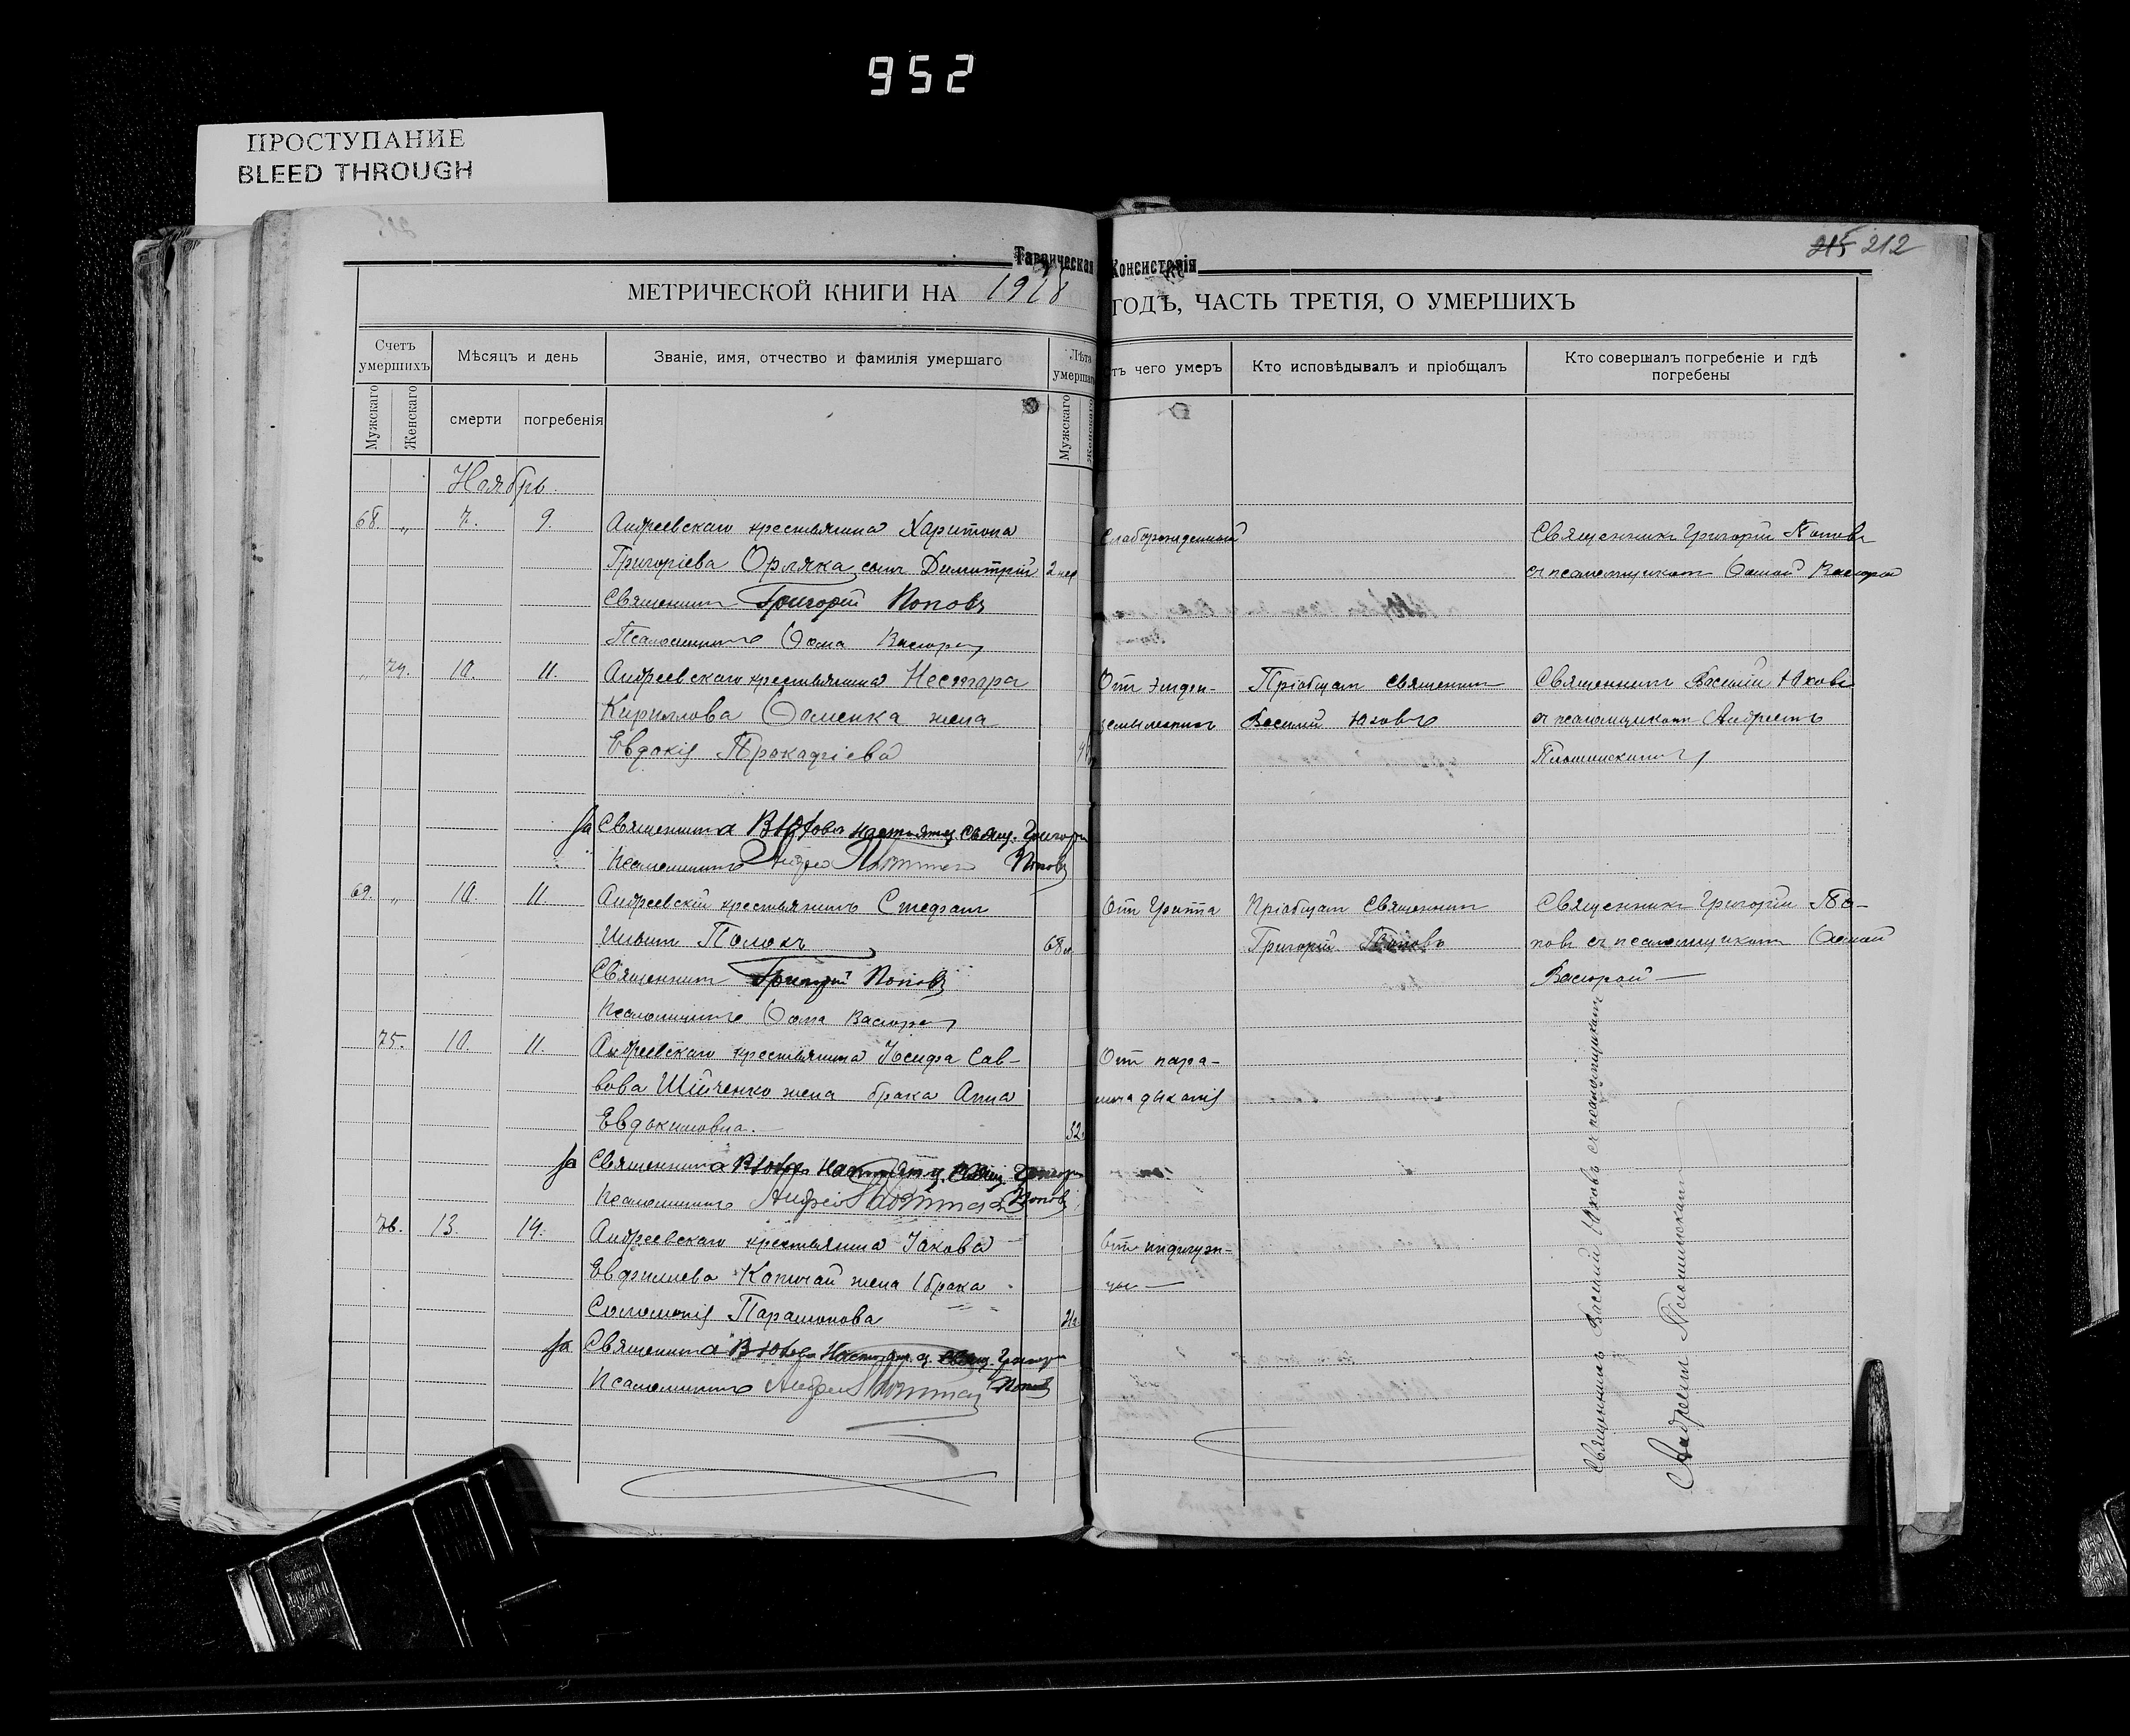 952
ПРОСТУПАНИЕ
BLEED THROUGH
215 212
Таврическая Консисторія
МЕТРИЧЕСКОЙ КНИГИ НА 1918 ГОДЪ, ЧАСТЬ ТРЕТІЯ, О УМЕРШИХЪ
Счетъ умершихъ
Мѣсяцъ и день
Званіе, имя, отчество и фамилія умершаго
Лѣта умершаго
тъ чего умеръ
Кто исповѣдывалъ и пріобщалъ
Кто совершалъ погребеніе и гдѣ погребены
Мужскаго
Женскаго
смерти
погребенія
Мужскаго
Женскаго
Ноябрь
68. „ 7. 9. Андреевскаго крестьянина Харитона Слаборожденный Священникъ Григорій Поповъ
Григоріева Орляка сынъ Димитрій 2 нед съ псаломщикомъ Ѳомой
Священникъ Григорій Поповъ
Псаломщикъ Ѳома
„ 74. 10. 11. Андреевскаго крестьянина Нестора От Пріобщалъ священникъ Священникъ Василій Юховъ
Кириллова Ѳоменка жена Василій Юховъ съ псаломщикомъ Андреемъ
Евдокія
За Священника В Юхова Настоятель Свящ. Григорій
Псаломщикъ Андрей Поповъ
69. „ 10. 11. Андреевскій крестьянинъ Стефанъ От Гриппа Пріобщалъ Священникъ Священникъ Григорій По-
Ильинъ 68 л Григорій Поповъ повъ съ псаломщикомъ Ѳомой
Священникъ Григорій Поповъ
Псаломщикъ Ѳома
75. 10. 11. Андреевскаго крестьянина Іосифа Сав- От пара-
вова Шійченко жена брака Анна лича дыханія
Евдокимовна. 32.
За Священника В Юхова Настоятель Свящ. Григорій
Псаломщикъ Андрей Поповъ
76. 13. 14. Андреевскаго крестьянина Іакова От
Евфиміева жена 1 брака
Соломонія Парамонова
За Священника В Юхова Настоятель Свящ. Григорій
Псаломщикъ Андрей Поповъ
Священникъ Василій Юховъ съ псаломщикомъ
Андреемъ